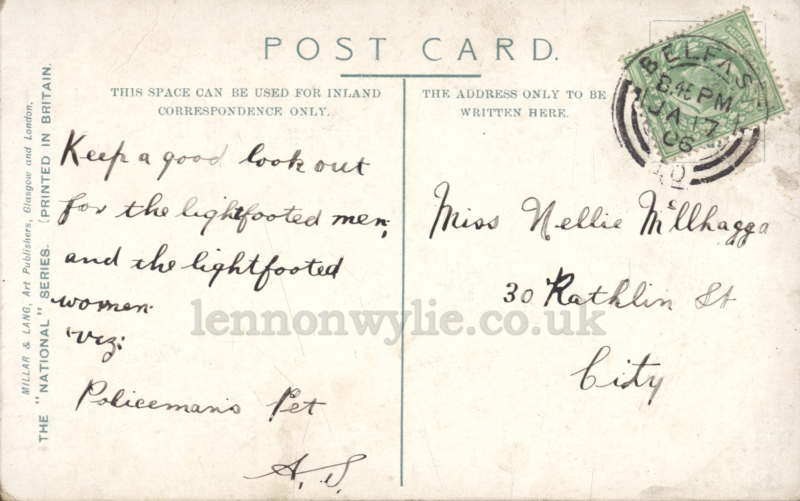 POST CARD.
THIS SPACE CAN BE USED FOR INLAND
CORRESPONDENCE ONLY.
THE ADDRESS ONLY TO BE
WRITTEN HERE.
BELFAST
8.45 PM
JA 17
06
Keep a good look out
for the lightfooted men,
and the lightfooted
women
Viz:
Policeman's Pet
A. S.
Miss Nellie McIlhagga
30 Rathlin St
City
MILLAR & LANG, Art Publishers, Glasgow and London.
THE "NATIONAL" SERIES. (PRINTED IN BRITAIN.
lennonwylie.co.uk